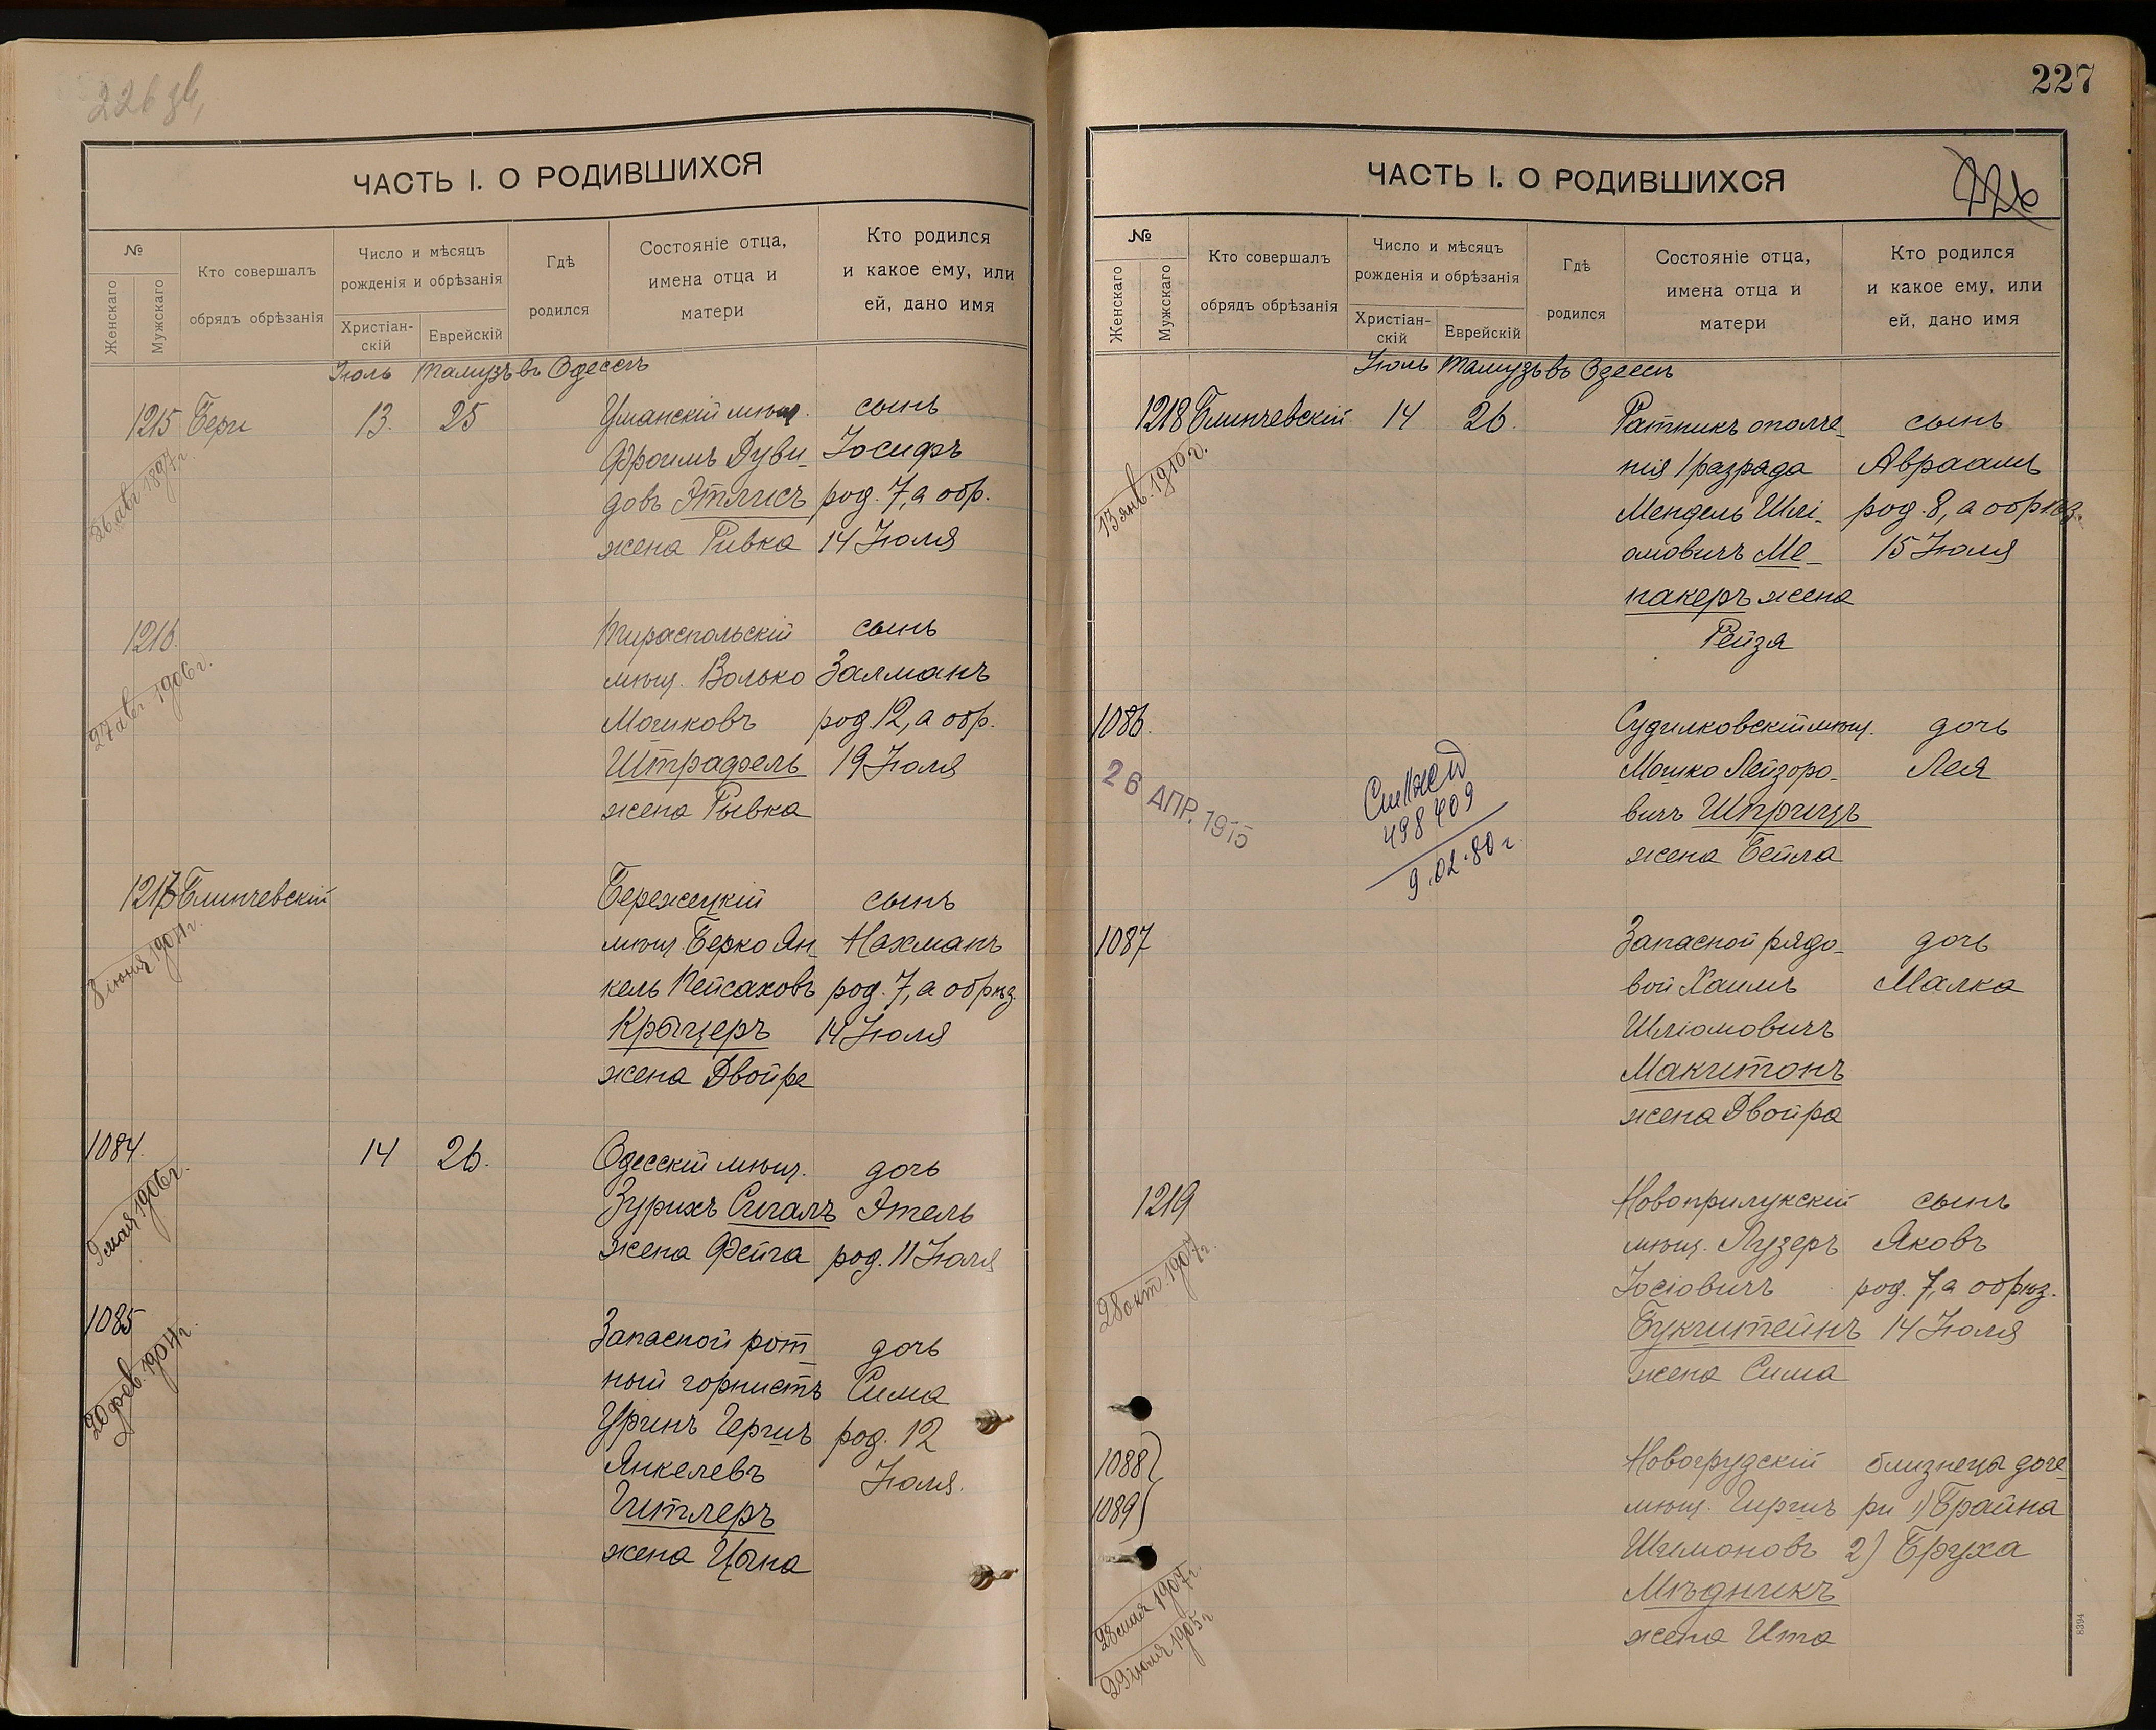 226 зв,
ЧАСТЬ I. О РОДИВШИХСЯ
№
Женскаго
Мужскаго
Кто совершалъ
обрядъ обрѣзанія
Число и мѣсяцъ
рожденія и обрѣзанія
Христіан-
скій
Еврейскій
Гдѣ
родился
Состояніе отца,
имена отца и
матери
Кто родился
и какое ему, или
ей, дано имя
Іюль Тамузъ въ Одессѣ
1215 Бери 13. 25 Уманскій мѣщ. сынъ
Фроимъ Дуви- Іосифъ
довъ Этлисъ род. 7, а обр.
жена Ривка 14 Іюля
26 авг 1897 г.
1216. Тираспольскій сынъ
мѣщ. Волько Залманъ
Мошковъ род 12, а обр.
Штрафель 19 Іюля
жена Рывка
27 авг 1906 г.
1217 Блинчевскій Бережецкій сынъ
мѣщ. Берко Ян- Нахманъ
кель Пейсаховъ род. 7, а обрѣз.
Крыцеръ 14 Іюля
жена Двойра
8 іюня 1904 г.
1084. 14 26. Одесскій мѣщ. дочь
Зурихъ Сигалъ Этель
жена Фейга род. 11 Іюля
9 мая 1906 г.
1085 Запасной рот- дочь
ный горнистъ Сима
Уринъ Гершъ род. 12
Янкелевъ Іюля.
Гитлеръ
жена Цына
20 фев. 1904 г.
227
226
ЧАСТЬ I. О РОДИВШИХСЯ
№
Женскаго
Мужскаго
Кто совершалъ
обрядъ обрѣзанія
Число и мѣсяцъ
рожденія и обрѣзанія
Христіан-
скій
Еврейскій
Гдѣ
родился
Состояніе отца,
имена отца и
матери
Кто родился
и какое ему, или
ей, дано имя
Іюль Тамузъ въ Одессѣ
1218 Блинчевскій 14 26. Ратникъ ополче- сынъ
нія 1 разряда Авраамъ
Мендель Шлі- род. 8, а обрѣз.
омовичъ Ме- 15 Іюля
накеръ жена
Рейзя
13 янв. 1910 г.
1086. Судилковскій мѣщ. дочь
Мошко Лейзоро- Лея
вичъ Шприцъ
жена Бейла
26 АПР. 1915
498409
9.02.80 г.
1087 Запасной рядо- дочь
вой Хаимъ Малка
Шліомовичъ
Макитонъ
жена Двойра
1219 Новоприлукскій сынъ
мѣщ. Лузеръ Яковъ
Іосіовичъ род. 7, а обрѣз.
Букштейнъ 14 Іюля
жена Сима
28 окт. 1907 г.
1088 Новогрудскій близнецы доче-
1089 мѣщ. Гиршъ ри 1) Брайна
Шимоновъ 2) Бруха
Мѣдникъ
жена Ита
28 мая 1907 г.
29 іюля 1905 г
8394